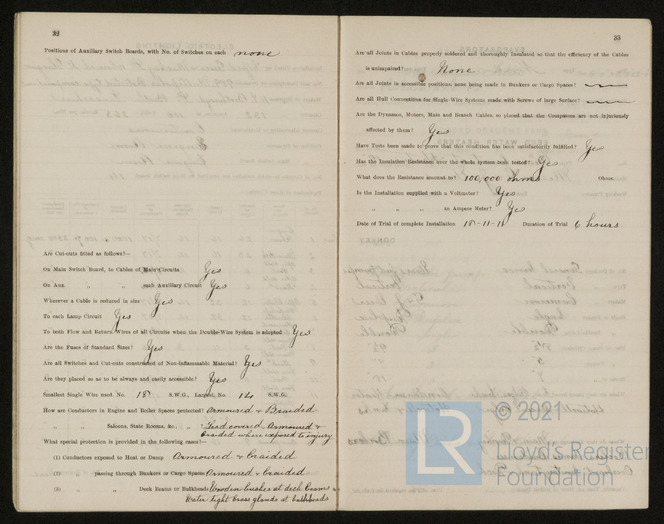 32
Positions of Auxiliary Switch Boards, with No. of Switches on each none
Are Cut-outs fitted as follows?—
On Main Switch Board, to Cables of Main Circuits Yes
On Aux. " " each Auxiliary Circuit Yes
Wherever a Cable is reduced in size Yes
To each Lamp Circuit Yes
To both Flow and Return Wires of all Circuits when the Double-Wire System is adopted Yes
Are the Fuses of Standard Sizes? Yes
Are all Switches and Cut-outs constructed of Non-inflammable Material? Yes
Are they placed so as to be always and easily accessible? Yes
Smallest Single Wire used, No. 18 S.W.G., Largest, No. 14 S.W.G.
How are Conductors in Engine and Boiler Spaces protected? Armoured & Braided
" " Saloons, State Rooms, &c., " Lead covered Armoured &
braided where exposed to injury
What special protection is provided in the following cases?—
(1) Conductors exposed to Heat or Damp Armoured & braided
(2) " passing through Bunkers or Cargo Spaces Armoured & braided
(3) " " Deck Beams or Bulkheads Wooden bushes at deck beams &
Water tight brass glands at bulkheads
33
Are all Joints in Cables properly soldered and thoroughly insulated so that the efficiency of the Cables
is unimpaired? None
Are all Joints in accessible positions, none being made in Bunkers or Cargo Spaces?
Are all Hull Connections for Single-Wire Systems made with Screws of large Surface?
Are the Dynamos, Motors, Main and Branch Cables so placed that the Compasses are not injuriously
affected by them? Yes
Have Tests been made to prove that this condition has been satisfactorily fulfilled? Yes
Has the Insulation Resistance over the whole system been tested? Yes
What does the Resistance amount to? 100,000 ohms Ohms.
Is the Installation supplied with a Voltmeter? Yes
" " " an Ampere Meter? Yes
Date of Trial of complete Installation 18-11-18 Duration of Trial 6 hours
LR
© 2021
Lloyd's Register
Foundation